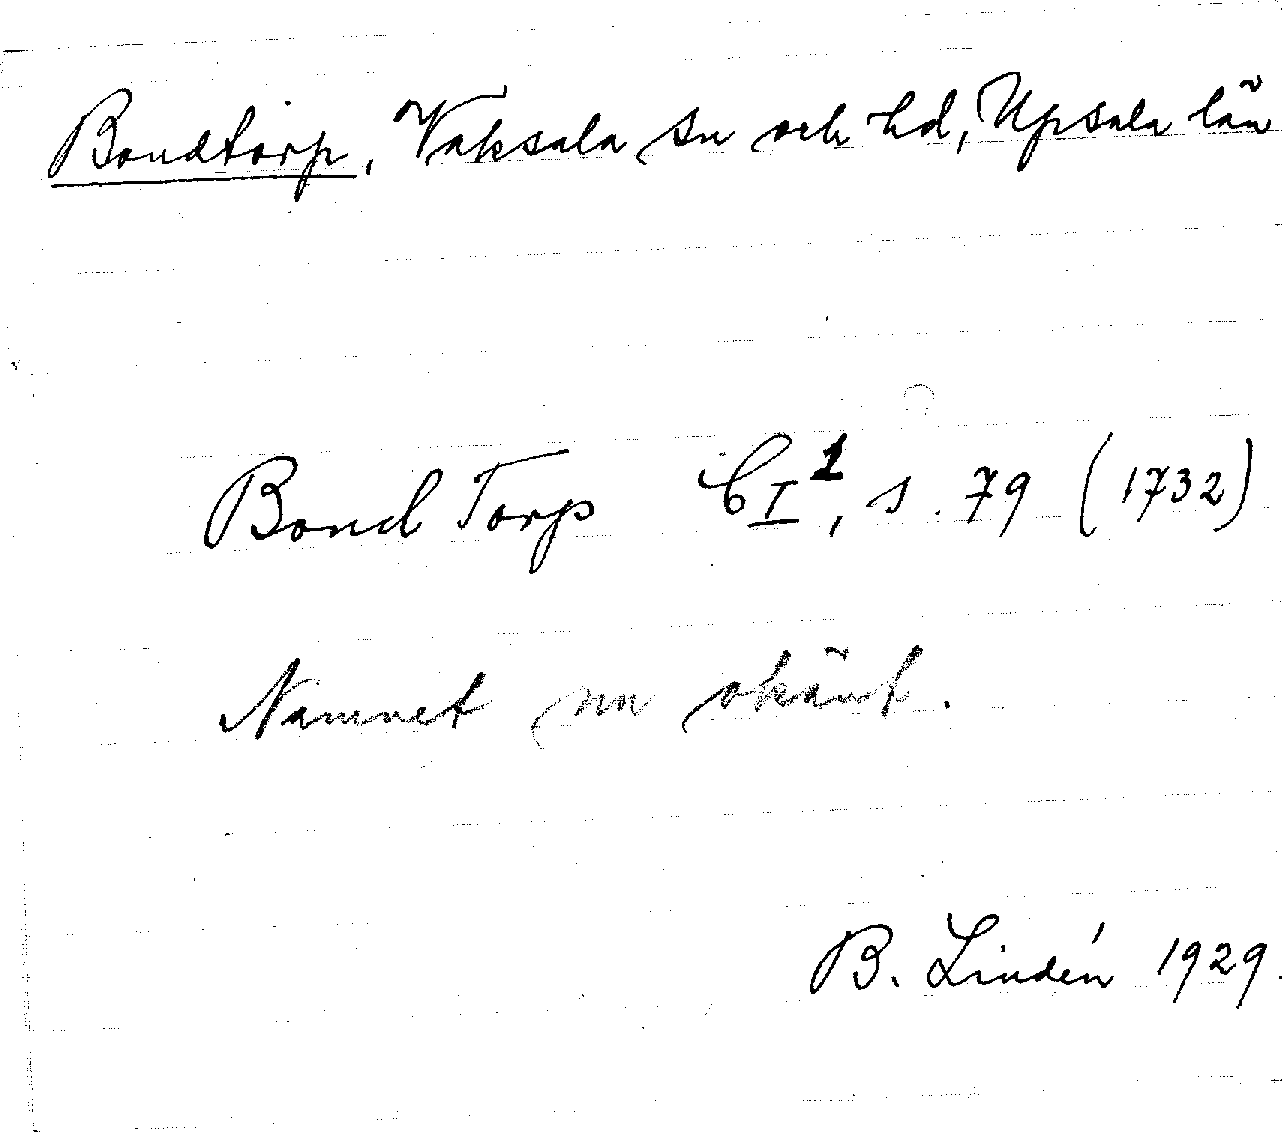 Bondtorp, Vaksala sn och hd, Upsala län
Bond Torp C I¹, s. 79 (1732)
Namnet nu okänt.
B. Lindén 1929.